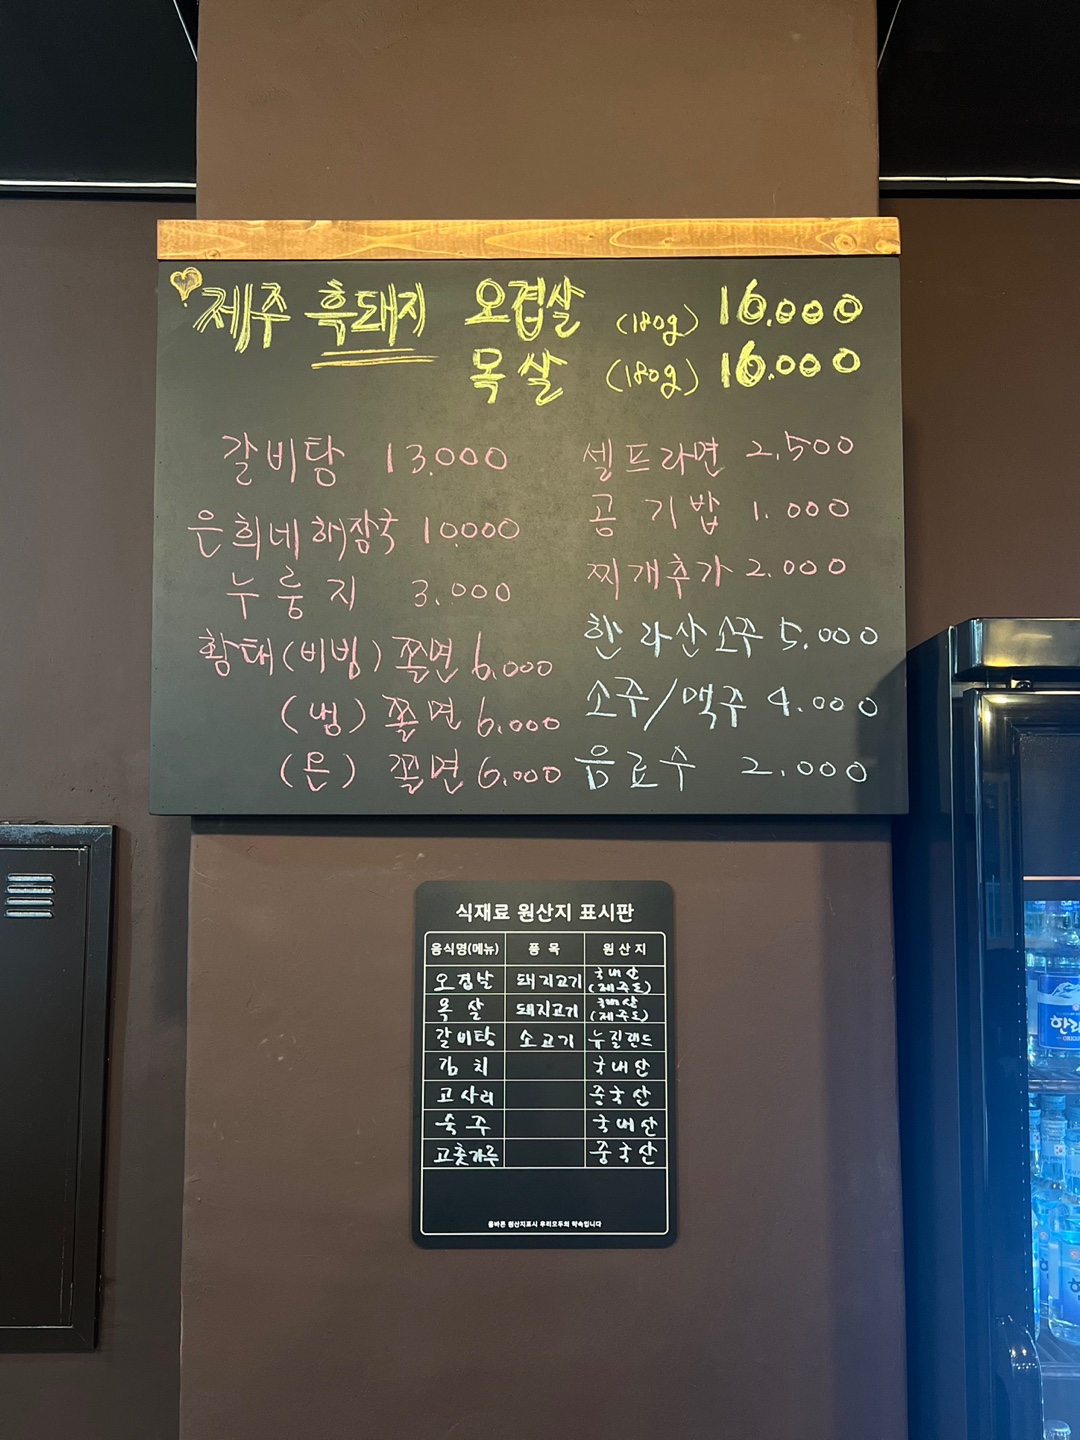 제주 흑돼지 오겹살 (180g) 16.000
목살 (180g) 16.000
갈비탕 13.000
은희네해장국 10.000
누룽지 3.000
황태(비빔)쫄면 6.000
(냉)쫄면 6.000
(온)쫄면 6.000
셀프라면 2.500
공기밥 1.000
찌개추가 2.000
한라산소주 5.000
소주/맥주 4.000
음료수 2.000
식재료 원산지 표시판
음식명(메뉴) 품목 원산지
오겹살 돼지고기 국내산 (제주도)
목살 돼지고기 국내산 (제주도)
갈비탕 소고기 뉴질랜드
김치 국내산
고사리 중국산
숙주 국내산
고춧가루 중국산
올바른 원산지표시 우리모두의 약속입니다
한라